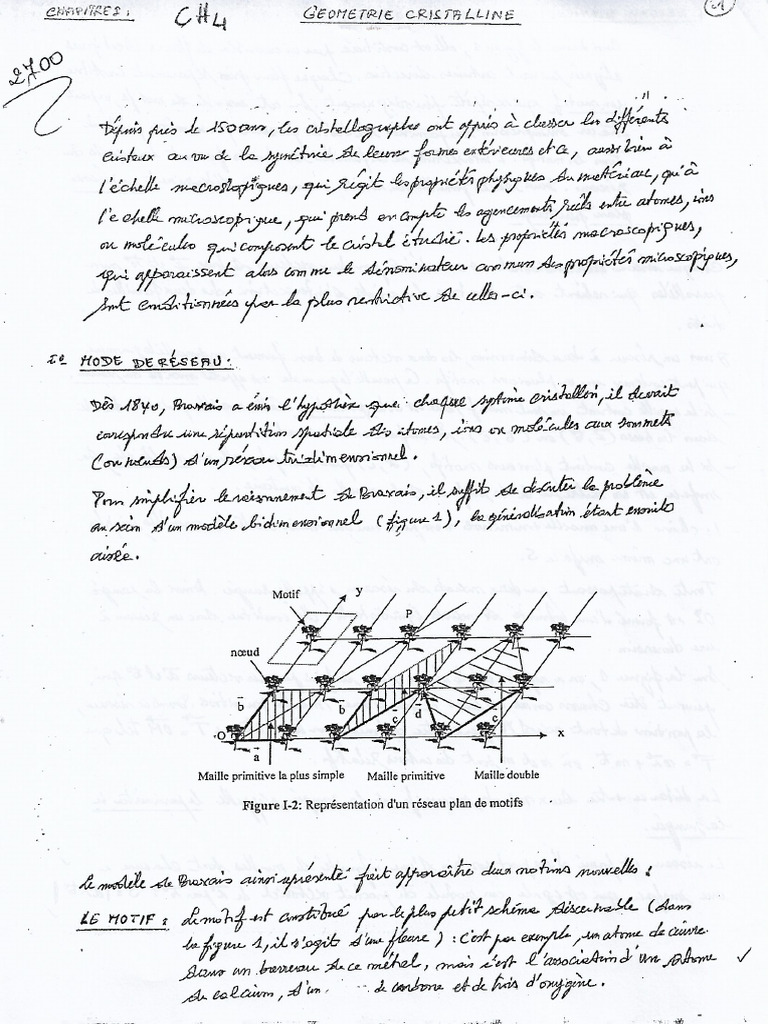 CHAPITRES: CH4 GEOMETRIE CRISTALLINE 1
2700
Depuis près de 150 ans, les cristallographes ont appris à classer les différents
cristaux au vu de la symétrie de leurs formes extérieures et ce, aussi bien à
l'échelle macroscopiques, qui régit les propriétés physiques du matériau, qu'à
l'échelle microscopique, qui prend en compte les agencements réels entre atomes, ions
ou molécules qui composent le cristal étudié. Les propriétés macroscopiques,
qui apparaissent alors comme le dénominateur commun des propriétés microscopiques,
sont conditionnées par la plus restrictive de celles-ci.
I° MODE DE RÉSEAU:
Dès 1840, Bravais a émis l'hypothèse que chaque système cristallin, il devait
correspondre une répartition spatiale des atomes, ions ou molécules aux sommets
(ou nœuds) d'un réseau tridimensionnel.
Pour simplifier le raisonnement de Bravais, il suffit de discuter le problème
au sein d'un modèle bidimensionnel (figure 1), la généralisation étant ensuite
aisée.
Motif y
P
nœud
b b c d c
O a x
Maille primitive la plus simple Maille primitive Maille double
Figure I-2: Représentation d'un réseau plan de motifs
Le modèle de Bravais ainsi représenté fait apparaître deux notions nouvelles:
LE MOTIF: Le motif est constitué par le plus petit schéma discernable (dans
la figure 1, il s'agit d'une fleure): c'est par exemple, un atome de cuivre
dans un barreau de ce métal, mais c'est l'association d'un atome
de calcium, d'un de carbone et de trois d'oxygène.